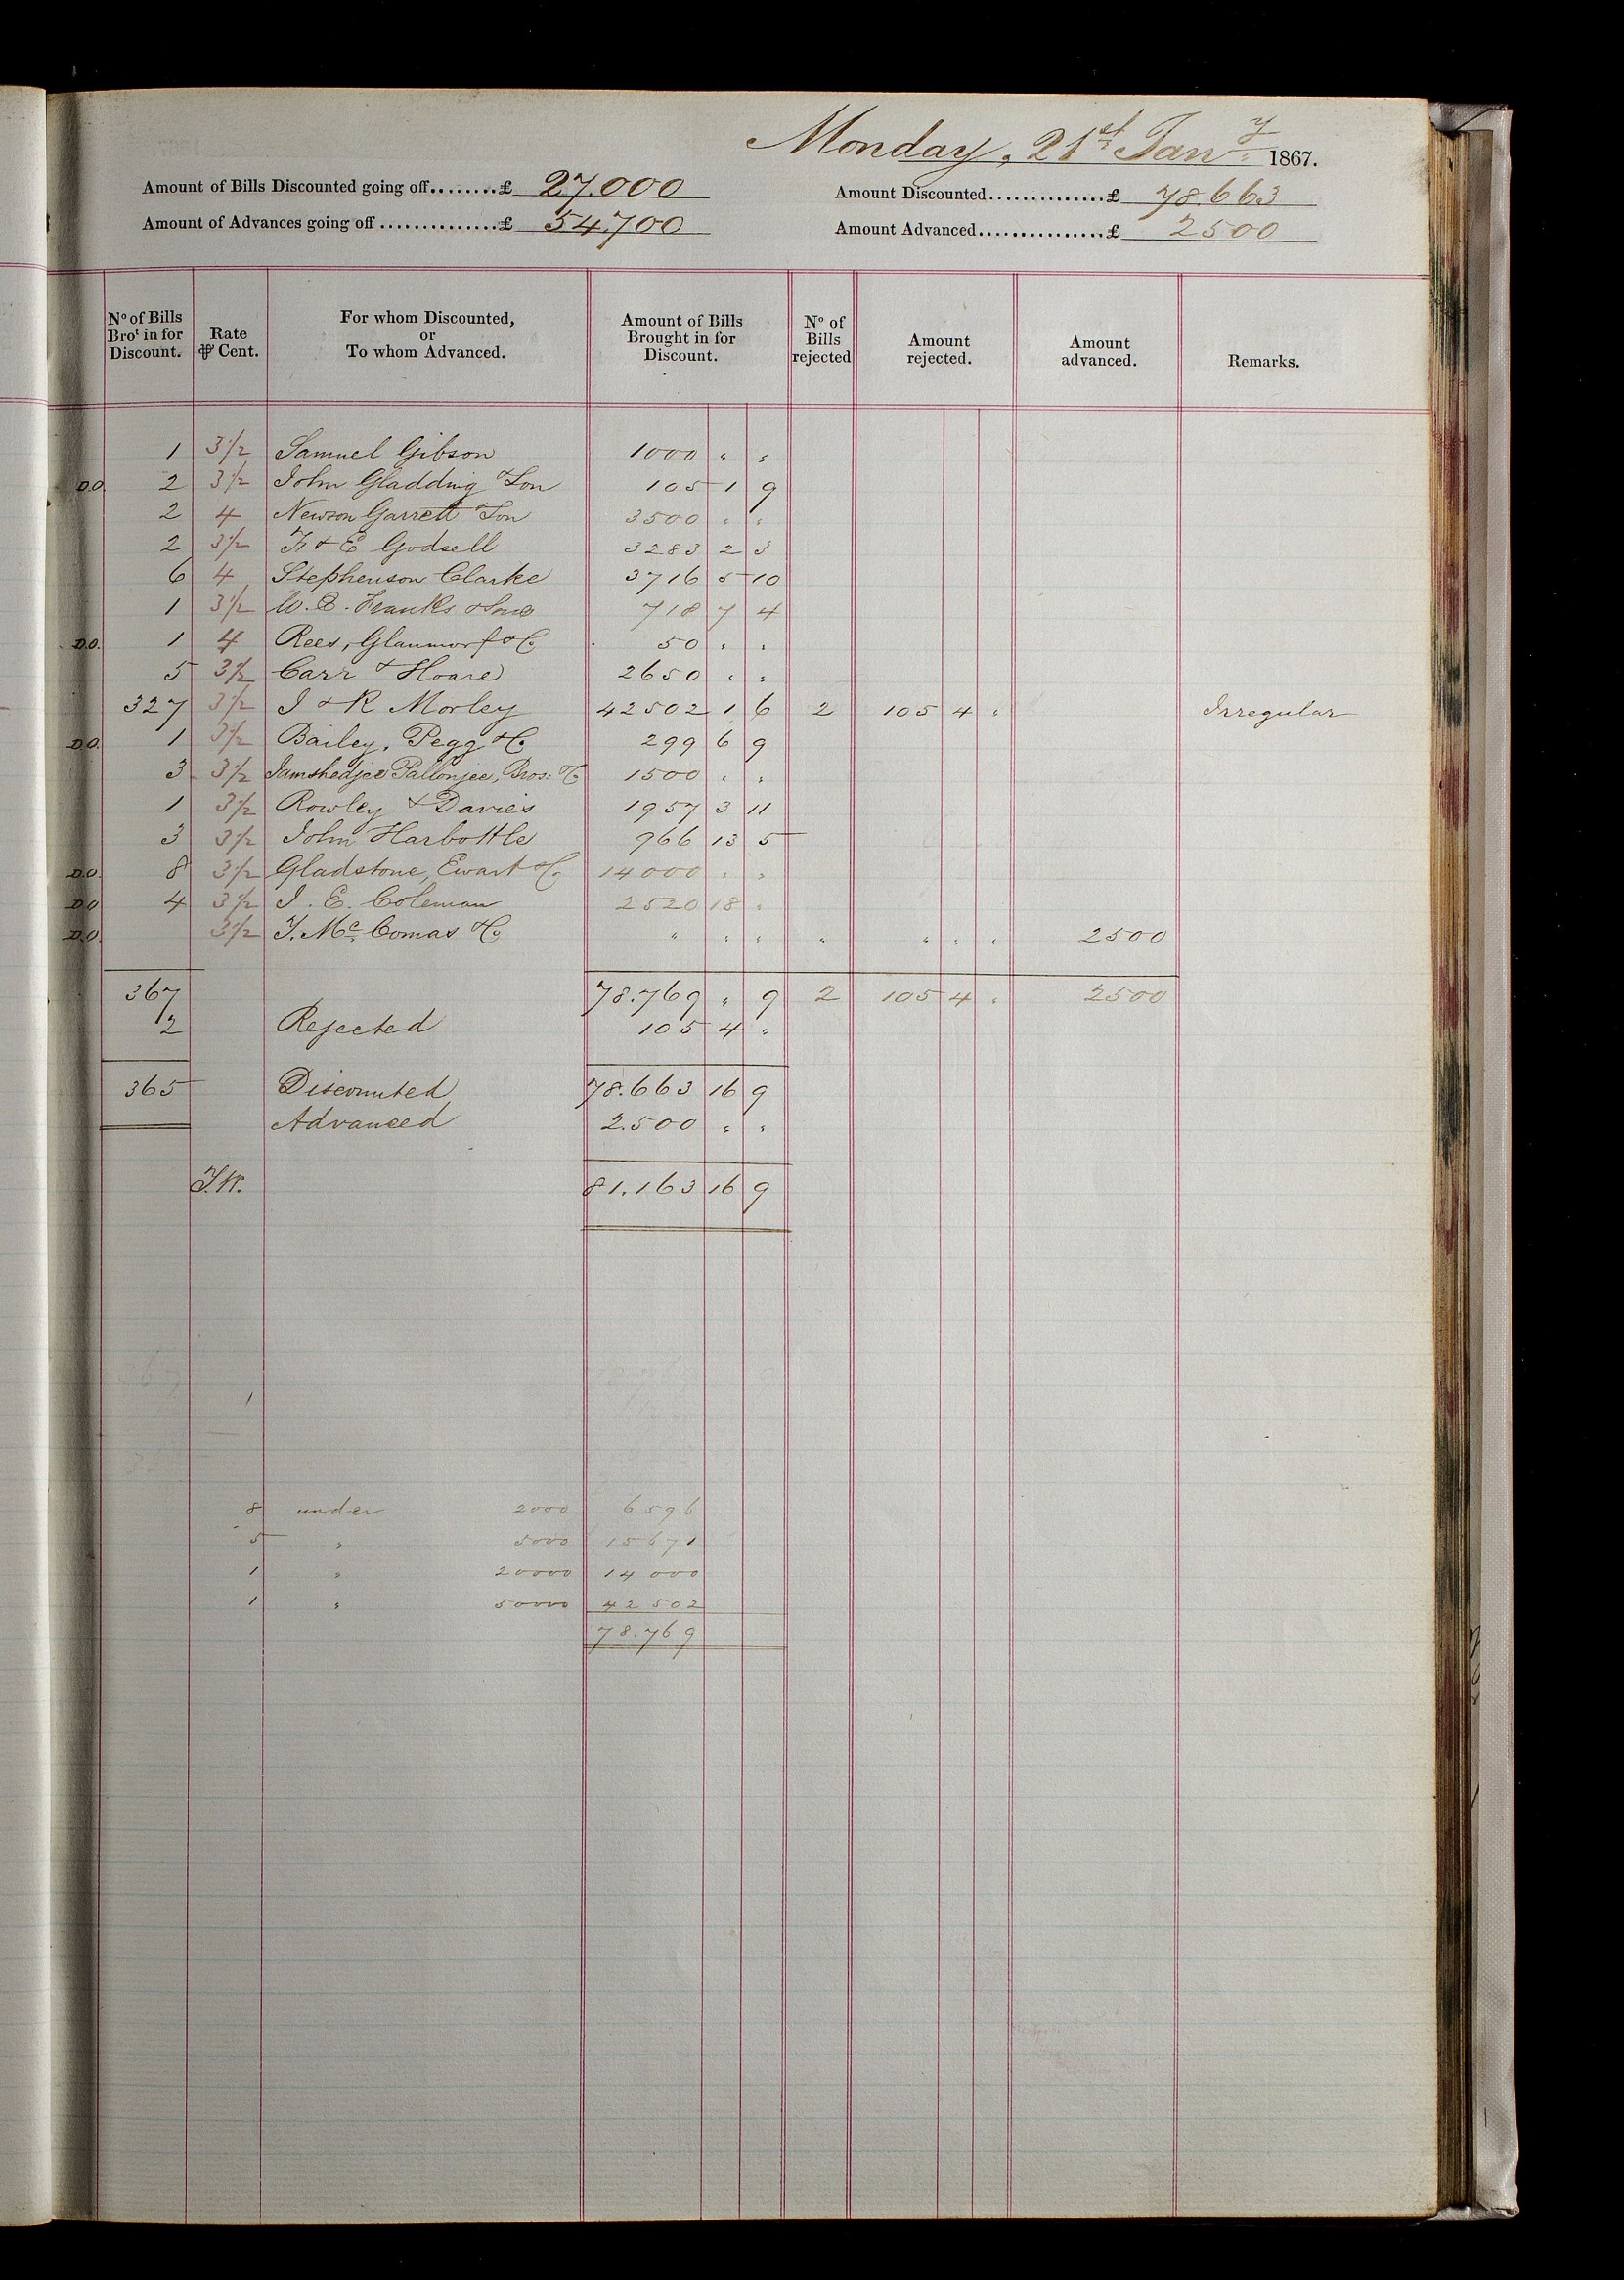 Monday, 21st Jany 1867.
Amount of Bills Discounted going off........£ 27.000 Amount Discounted..............£ 78.663
Amount of Advances going off...............£ 54.700 Amount Advanced................£ 2500
No of Bills Brot in for Discount. Rate ⅌ Cent. For whom Discounted, or To whom Advanced. Amount of Bills Brought in for Discount. No of Bills rejected Amount rejected. Amount advanced. Remarks.
1 3½ Samuel Gibson 1000 " "
D.O. 2 3½ John Gladding & Son 105 1 9
2 4 Newson Garrett & Son 3500 " "
2 3½ F & E Godsell 3283 2 3
6 4 Stephenson Clarke 3716 5 10
1 3½ W. E. Franks & Sons 718 7 4
D.O. 1 4 Rees, & Co 50 " "
5 3½ Carr & Hoare 2650 " "
327 3½ I & R Morley 42502 1 6 2 105 4 " Irregular
D.O. 1 3½ Bailey, Pegg & Co 299 6 9
3 3½ Jamshedjee Pallonjee, Bros: & Co 1500 " "
1 3½ Rowley & Davies 1957 3 11
3 3½ John Harbottle 966 13 5
D.O. 8 3½ Gladstone, Ewart & Co 14000 " "
D.O 4 3½ J. E. Coleman 2520 18 "
D.O. 3½ McComas & Co " " " " " " " 2500
367 78.769 " 9 2 105 4 " 2500
2 Rejected 105 4 "
365 Discounted 78.663 16 9
Advanced 2.500 " "
81.163 16 9
1
8 under 2000 6596
5 " 5000 15671
1 " 20000 14000
1 " 50000 42502
78.769